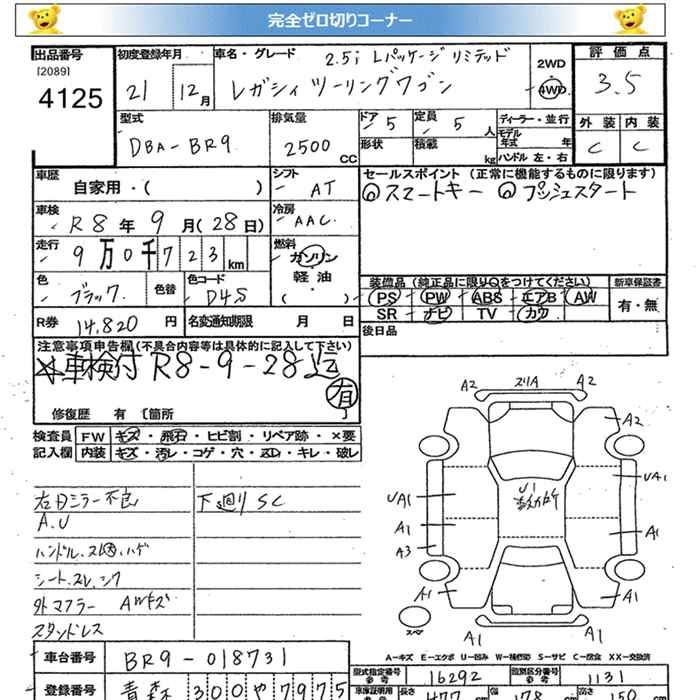 完全ゼロ切りコーナー
出品番号 [2089] 4125
初度登録年月 21 12月
車名・グレード 2.5i Lパッケージリミテッド
レガシィツーリングワゴン
2WD 4WD
評価点 3.5
外装 内装
C C
型式 DBA-BR9
排気量 2500 CC
ドア 5
定員 5 人
形状 積載 kg
ディーラー・並行
モデル年式 年
ハンドル 左・右
車歴 自家用・( )
シフト AT
セールスポイント (正常に機能するものに限ります)
スマートキー プッシュスタート
車検 R8年9月(28日)
冷房 AAC
走行 9万0千723km
燃料 ガソリン 軽油 ( )
色 ブラック 色替
色コード D4S
装備品 (純正品に限り○をつけてください)
PS PW ABS エアB AW
SR ナビ TV カワ
新車保証書 有・無
R券 14,820円
名変通知期限 月 日
後日品
注意事項申告欄(不具合内容等は具体的に記入して下さい)
車検付 R8-9-28迄
有
修復歴 有 〔箇所
検査員記入欄
FW キズ・飛石・ヒビ割・リペア跡・×要
内装 キズ・汚レ・コゲ・穴・スレ・キレ・破レ
右日ミラー不良 下廻りSC
A.U
ハンドル.スレ.ハゲ
シート.スレ.シワ
外マフラー AWキズ
スタッドレス
A2 スリA A2
A2
U1
UA1 UA1
A1 A1
A3
A1 A1
スペア
A1 A1
A－キズ E－エクボ U－凹み W－補修跡 S－サビ C－腐食 XX－交換済
車台番号 BR9-018731
型式指定番号 16292
類別区分番号 1131
登録番号 青森 300 や 7975
車庫証明用参考 長さ 477 幅 178 高さ 150
cm cm cm